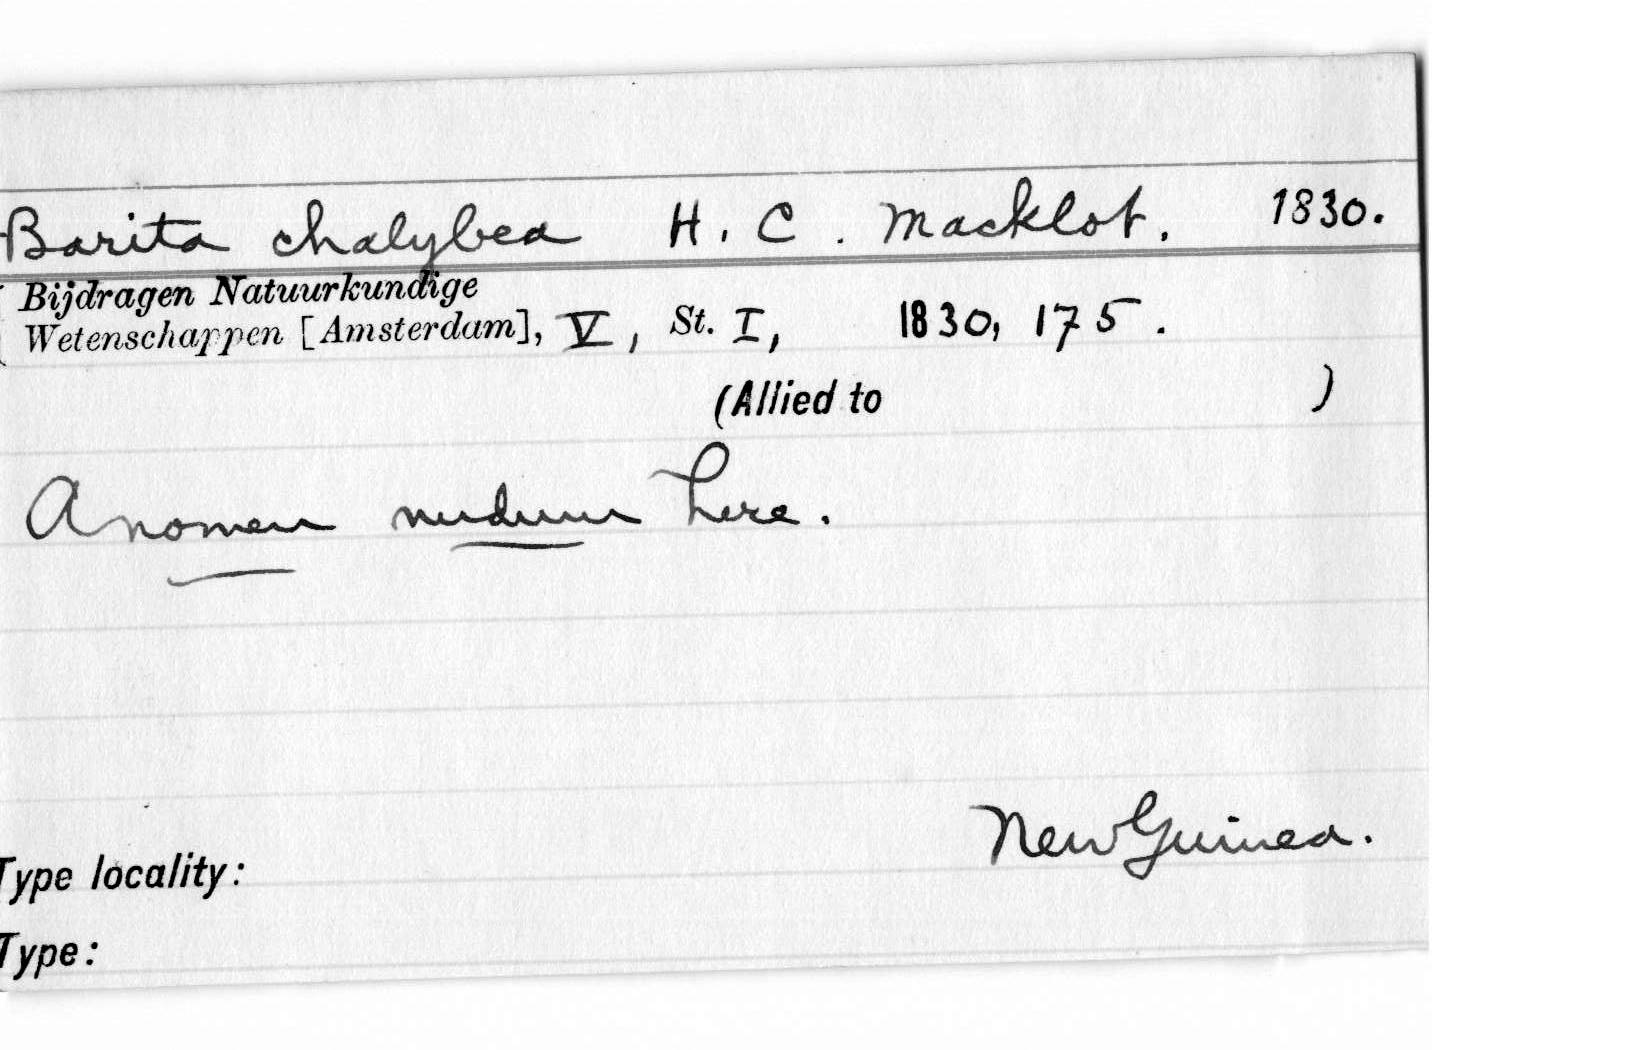 Barita chalybea H. C. Macklot. 1830.
(Bijdragen Natuurkundige
Wetenschappen [Amsterdam], V, St. I, 1830, 175.
(Allied to )
A nomen nudum here.
New Guinea.
Type locality:
Type: